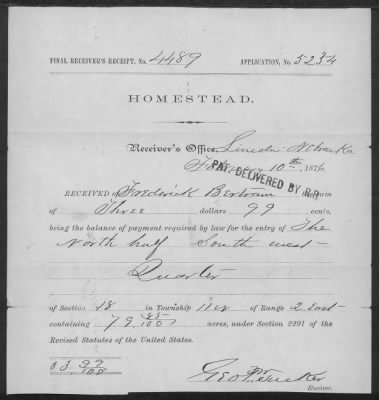 FINAL RECEIVER'S RECEIPT, No. 4489 APPLICATION, No. 5234
HOMESTEAD.
Receiver's Office, Lincoln Nebraska
10th, 1876
PAT. DELIVERED BY R.R.
RECEIVED of Frederick Bertram the sum
of Three dollars 99 cents,
being the balance of payment required by law for the entry of The
North half South west
Quarter
of Section 18 in Township 11 N of Range 2 East
containing 79 85/100 acres, under Section 2291 of the
Revised Statutes of the United States.
$ 3 99/100
Geo P. Tucker
Receiver.